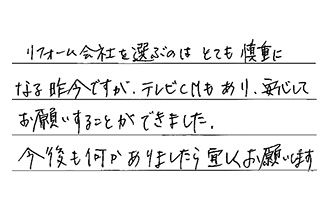 リフォーム会社を選ぶのは とても 慎重に
なる昨今ですが、テレビCMもあり、安心して
お願いすることができました。
今後も何かありましたら宜しくお願いします